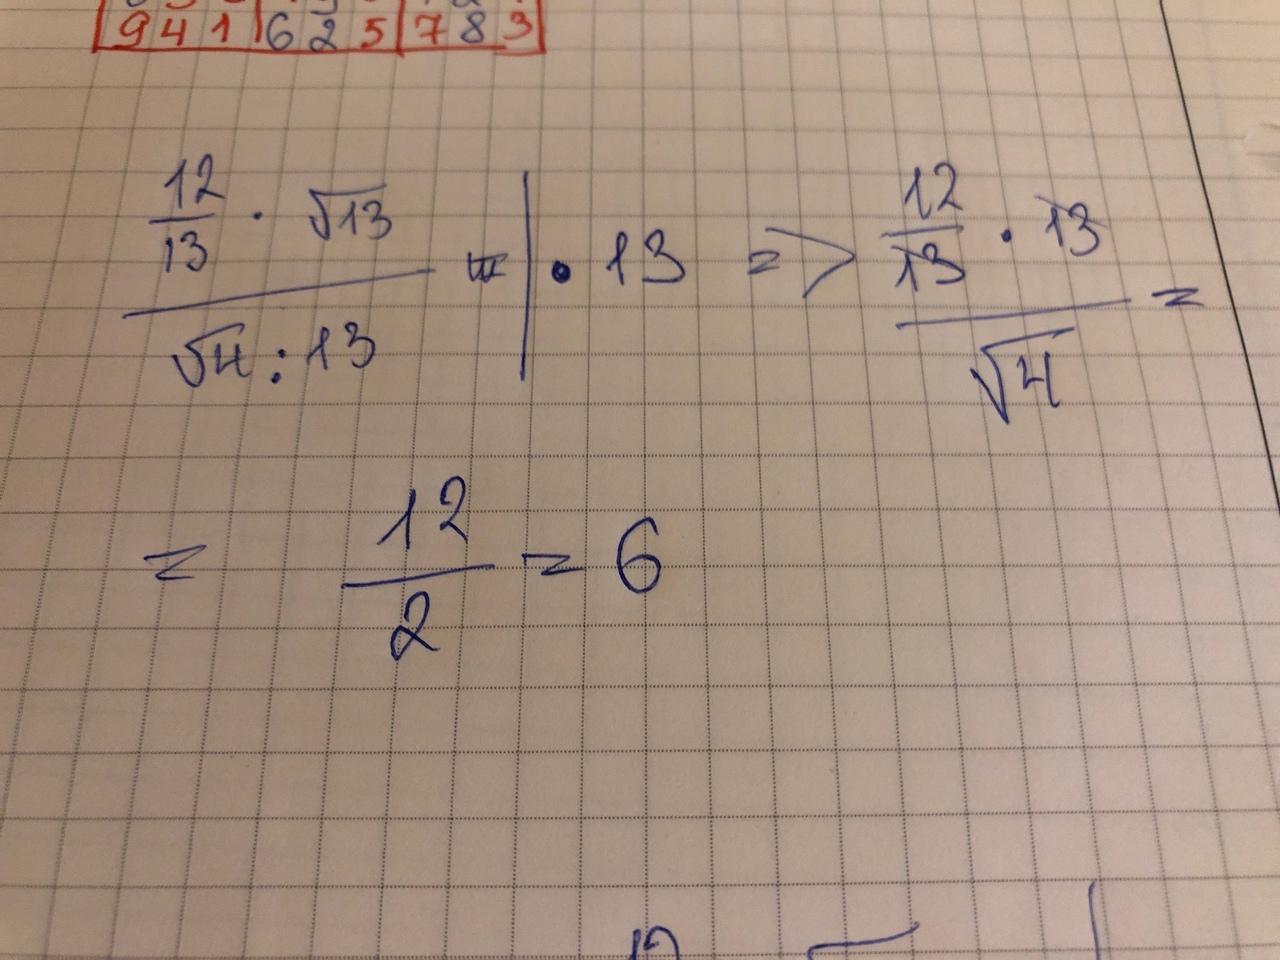 9 4 1 6 2 5 7 8 3
12/13 · √13 / √4 : 13 = | · 13 => 12/13 · 13 / √4 =
= 12/2 = 6